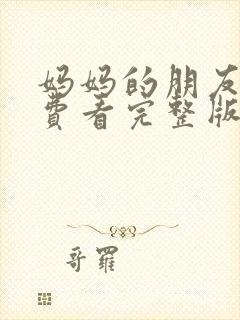 妈妈的朋友
费看完整版
哥罗